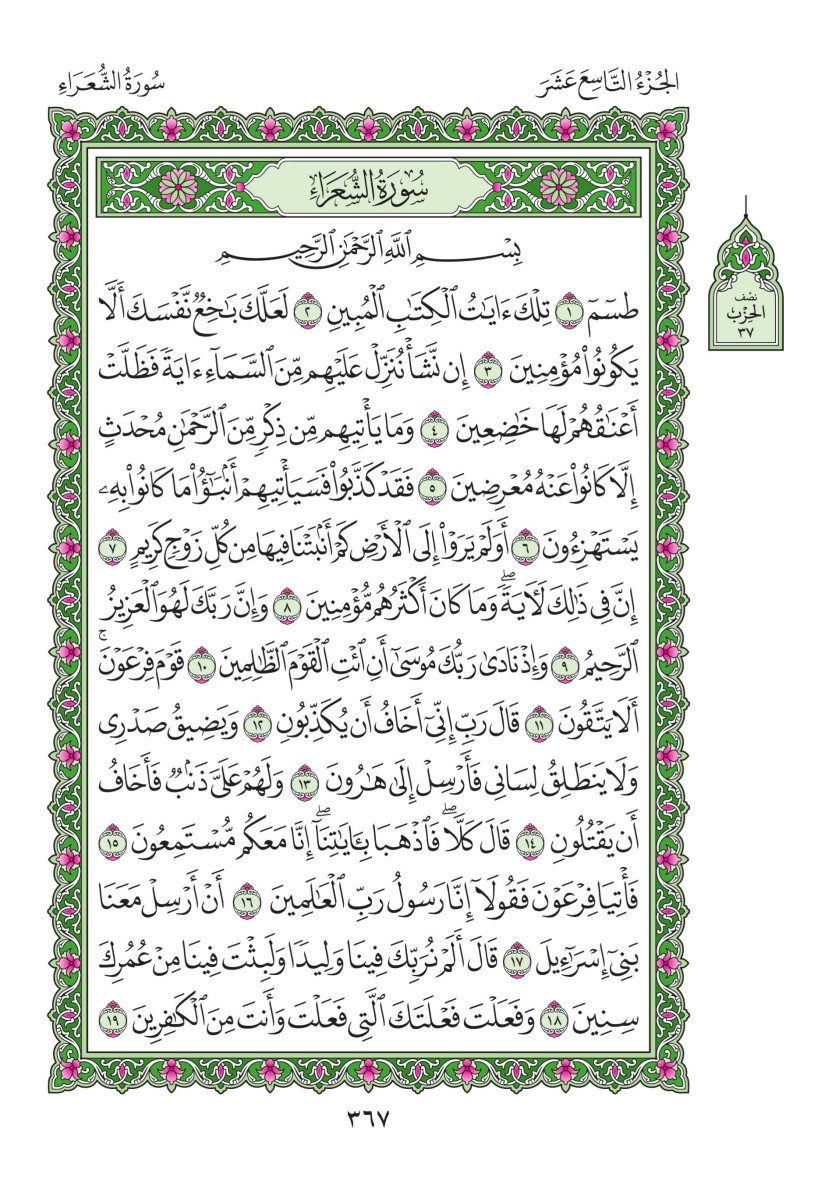 الجُزْءُ التَّاسِعَ عَشَرَ
سُورَةُ الشُّعَرَاءِ
سُورَةُ الشُّعَرَاءِ
بِسۡمِ ٱللَّهِ ٱلرَّحۡمَٰنِ ٱلرَّحِيمِ
طسٓمٓ ١ تِلۡكَ ءَايَٰتُ ٱلۡكِتَٰبِ ٱلۡمُبِينِ ٢ لَعَلَّكَ بَٰخِعٞ نَّفۡسَكَ أَلَّا
يَكُونُواْ مُؤۡمِنِينَ ٣ إِن نَّشَأۡ نُنَزِّلۡ عَلَيۡهِم مِّنَ ٱلسَّمَآءِ ءَايَةٗ فَظَلَّتۡ
أَعۡنَٰقُهُمۡ لَهَا خَٰضِعِينَ ٤ وَمَا يَأۡتِيهِم مِّن ذِكۡرٖ مِّنَ ٱلرَّحۡمَٰنِ مُحۡدَثٍ
إِلَّا كَانُواْ عَنۡهُ مُعۡرِضِينَ ٥ فَقَدۡ كَذَّبُواْ فَسَيَأۡتِيهِمۡ أَنۢبَٰٓؤُاْ مَا كَانُواْ بِهِۦ
يَسۡتَهۡزِءُونَ ٦ أَوَلَمۡ يَرَوۡاْ إِلَى ٱلۡأَرۡضِ كَمۡ أَنۢبَتۡنَا فِيهَا مِن كُلِّ زَوۡجٖ كَرِيمٍ ٧
إِنَّ فِي ذَٰلِكَ لَأٓيَةٗۖ وَمَا كَانَ أَكۡثَرُهُم مُّؤۡمِنِينَ ٨ وَإِنَّ رَبَّكَ لَهُوَ ٱلۡعَزِيزُ
ٱلرَّحِيمُ ٩ وَإِذۡ نَادَىٰ رَبُّكَ مُوسَىٰٓ أَنِ ٱئۡتِ ٱلۡقَوۡمَ ٱلظَّٰلِمِينَ ١٠ قَوۡمَ فِرۡعَوۡنَۚ
أَلَا يَتَّقُونَ ١١ قَالَ رَبِّ إِنِّيٓ أَخَافُ أَن يُكَذِّبُونِ ١٢ وَيَضِيقُ صَدۡرِي
وَلَا يَنطَلِقُ لِسَانِي فَأَرۡسِلۡ إِلَىٰ هَٰرُونَ ١٣ وَلَهُمۡ عَلَيَّ ذَنۢبٞ فَأَخَافُ
أَن يَقۡتُلُونِ ١٤ قَالَ كَلَّاۖ فَٱذۡهَبَا بِـَٔايَٰتِنَآۖ إِنَّا مَعَكُم مُّسۡتَمِعُونَ ١٥
فَأۡتِيَا فِرۡعَوۡنَ فَقُولَآ إِنَّا رَسُولُ رَبِّ ٱلۡعَٰلَمِينَ ١٦ أَنۡ أَرۡسِلۡ مَعَنَا
بَنِيٓ إِسۡرَٰٓءِيلَ ١٧ قَالَ أَلَمۡ نُرَبِّكَ فِينَا وَلِيدٗا وَلَبِثۡتَ فِينَا مِنۡ عُمُرِكَ
سِنِينَ ١٨ وَفَعَلۡتَ فَعۡلَتَكَ ٱلَّتِي فَعَلۡتَ وَأَنتَ مِنَ ٱلۡكَٰفِرِينَ ١٩
نصف
الحِزْب
٣٧
٣٦٧